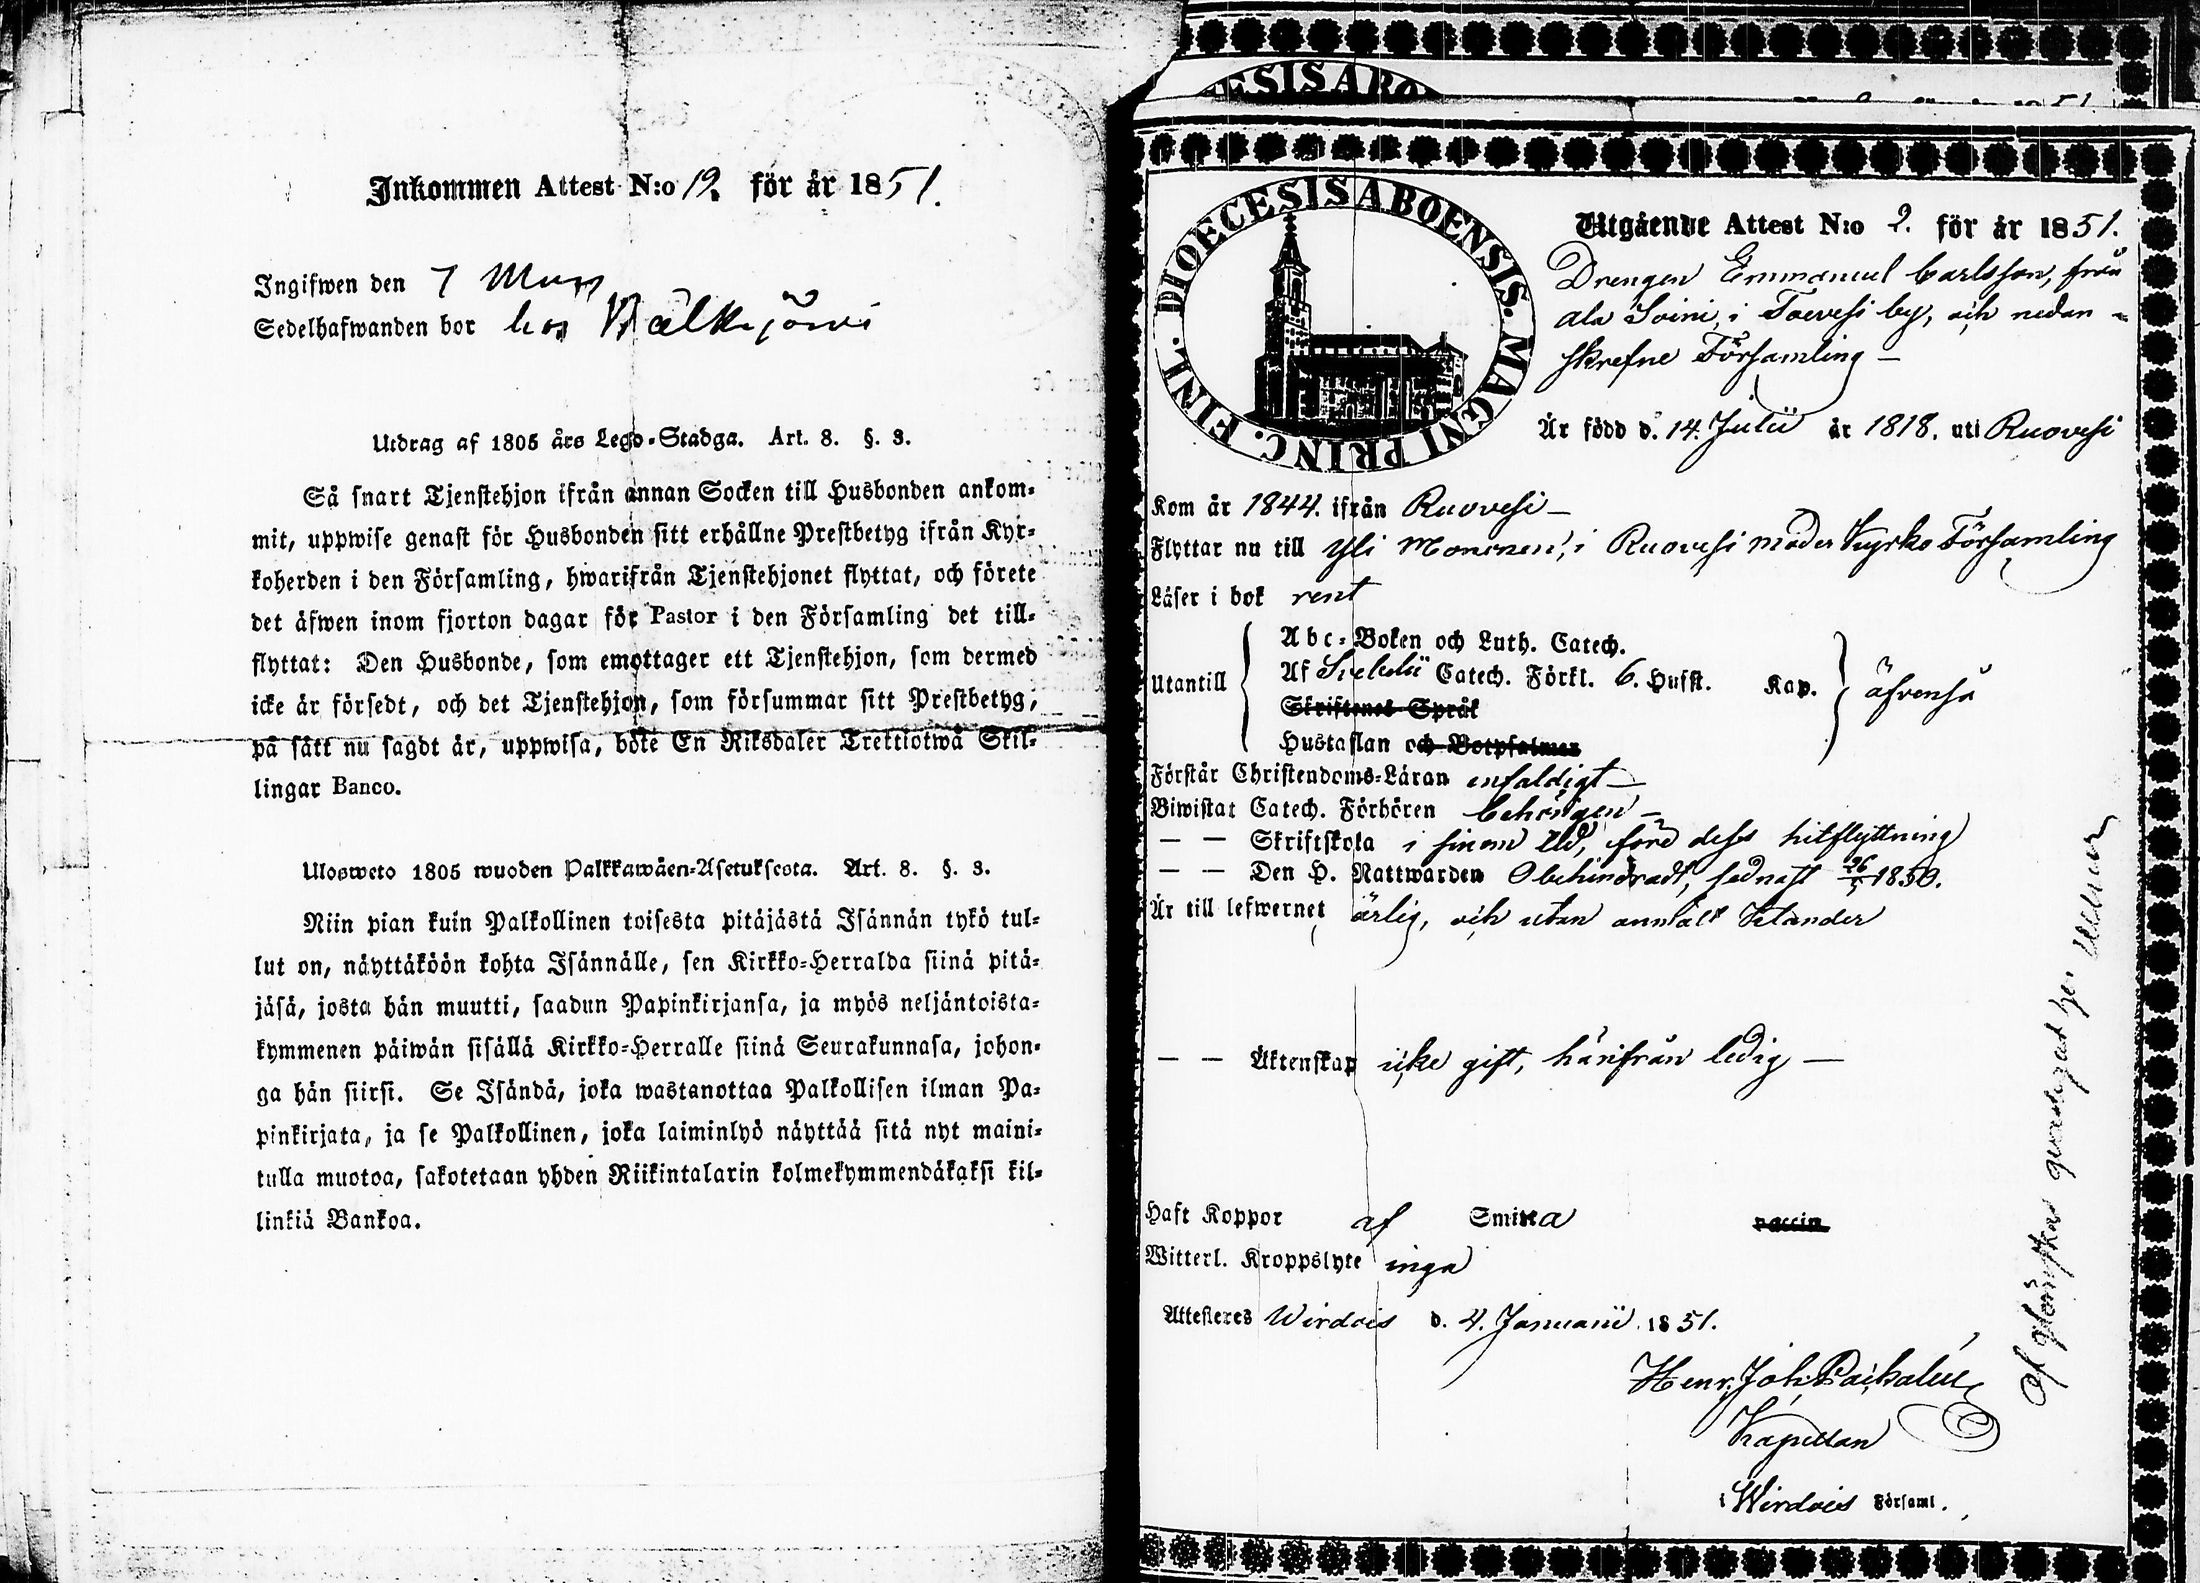 Inkommen Attest N:o 12. för år 1851.
Ingifwen den 7 Mars
Sedelhafwanden bor hos Wälkijärvi
Utdrag af 1805 års Lego-Stadga. Art. 8. §. 3.
Så snart Tjenstehjon ifrån annan Socken till Husbonden ankom-
mit, uppwise genast för Husbonden sitt erhållne Prestbetyg ifrån Kyr-
koherden i den Församling, hwarifrån Tjenstehjonet flyttat, och förete
det äfwen inom fjorton dagar för Pastor i den Församling det till-
flyttat: Den Husbonde, som emottager ett Tjenstehjon, som dermed
icke är försedt, och det Tjenstehjon, som försummar sitt Prestbetyg,
på sätt nu sagdt är, uppwisa, böte En Riksdaler Trettiotwå Skil-
lingar Banco.
Ulosweto 1805 wuoden Palkkawäen-Asetuksesta. Art. 8. §. 3.
Niin pian kuin Palkollinen toisesta pitäjästä Isännän tykö tul-
lut on, näyttäköön kohta Isännälle, sen Kirkko-Herralda siinä pitä-
jäsä, josta hän muutti, saadun Papinkirjansa, ja myös neljäntoista-
kymmenen päiwän sisällä Kirkko-Herralle siinä Seurakunnasa, johon-
ga hän siirsi. Se Isändä, joka wastanottaa Palkollisen ilman Pa-
pinkirjata, ja se Palkollinen, joka laiminlyö näyttää sitä nyt maini-
tulla muotoa, sakotetaan yhden Riikintalarin kolmekymmendäkaksi kil-
linkiä Bankoa.
ESIS ABO
DIOECESIS ABOENSIS. MAGNI PRINC. FINL.
Utgående Attest N:o 2. för år 1851.
Drengen Emmanuel Carlsson, från
Ala Soini, i Toevesi by, och nedan-
skrefne Församling –
Är född d. 14. Julii år 1818. uti Ruovesi
Kom år 1844. ifrån Ruovesi –
Flyttar nu till Yli Moninen, i Ruovesi moder Kyrko Församling
Läser i bok rent
Utantill
Abc-Boken och Luth. Catech.
Af Svebelii Catech. Förkl. 6. Hufst. Kap. äfvenså
Skriftenes Språk
Hustaflan och Botpsalmer
Förstår Christendoms-Läran enfaldigt –
Biwistat Catech. Förhören behörigen –
– – Skriftskola i sinom tid, före dess hitflyttning
– – Den H. Nattwarden Obehindradt, sednast 26/5 1850.
Är till lefwernet ärlig, och utan anmält klander
– – Äktenskap icke gift, härifrån ledig –
Haft Koppor af Smitta vaccin
Witterl. Kroppslyte inga
Attesteres Wirdois d. 4. Januarii 1851.
Henr. Joh.
Kapellan
i Wirdois Församl.